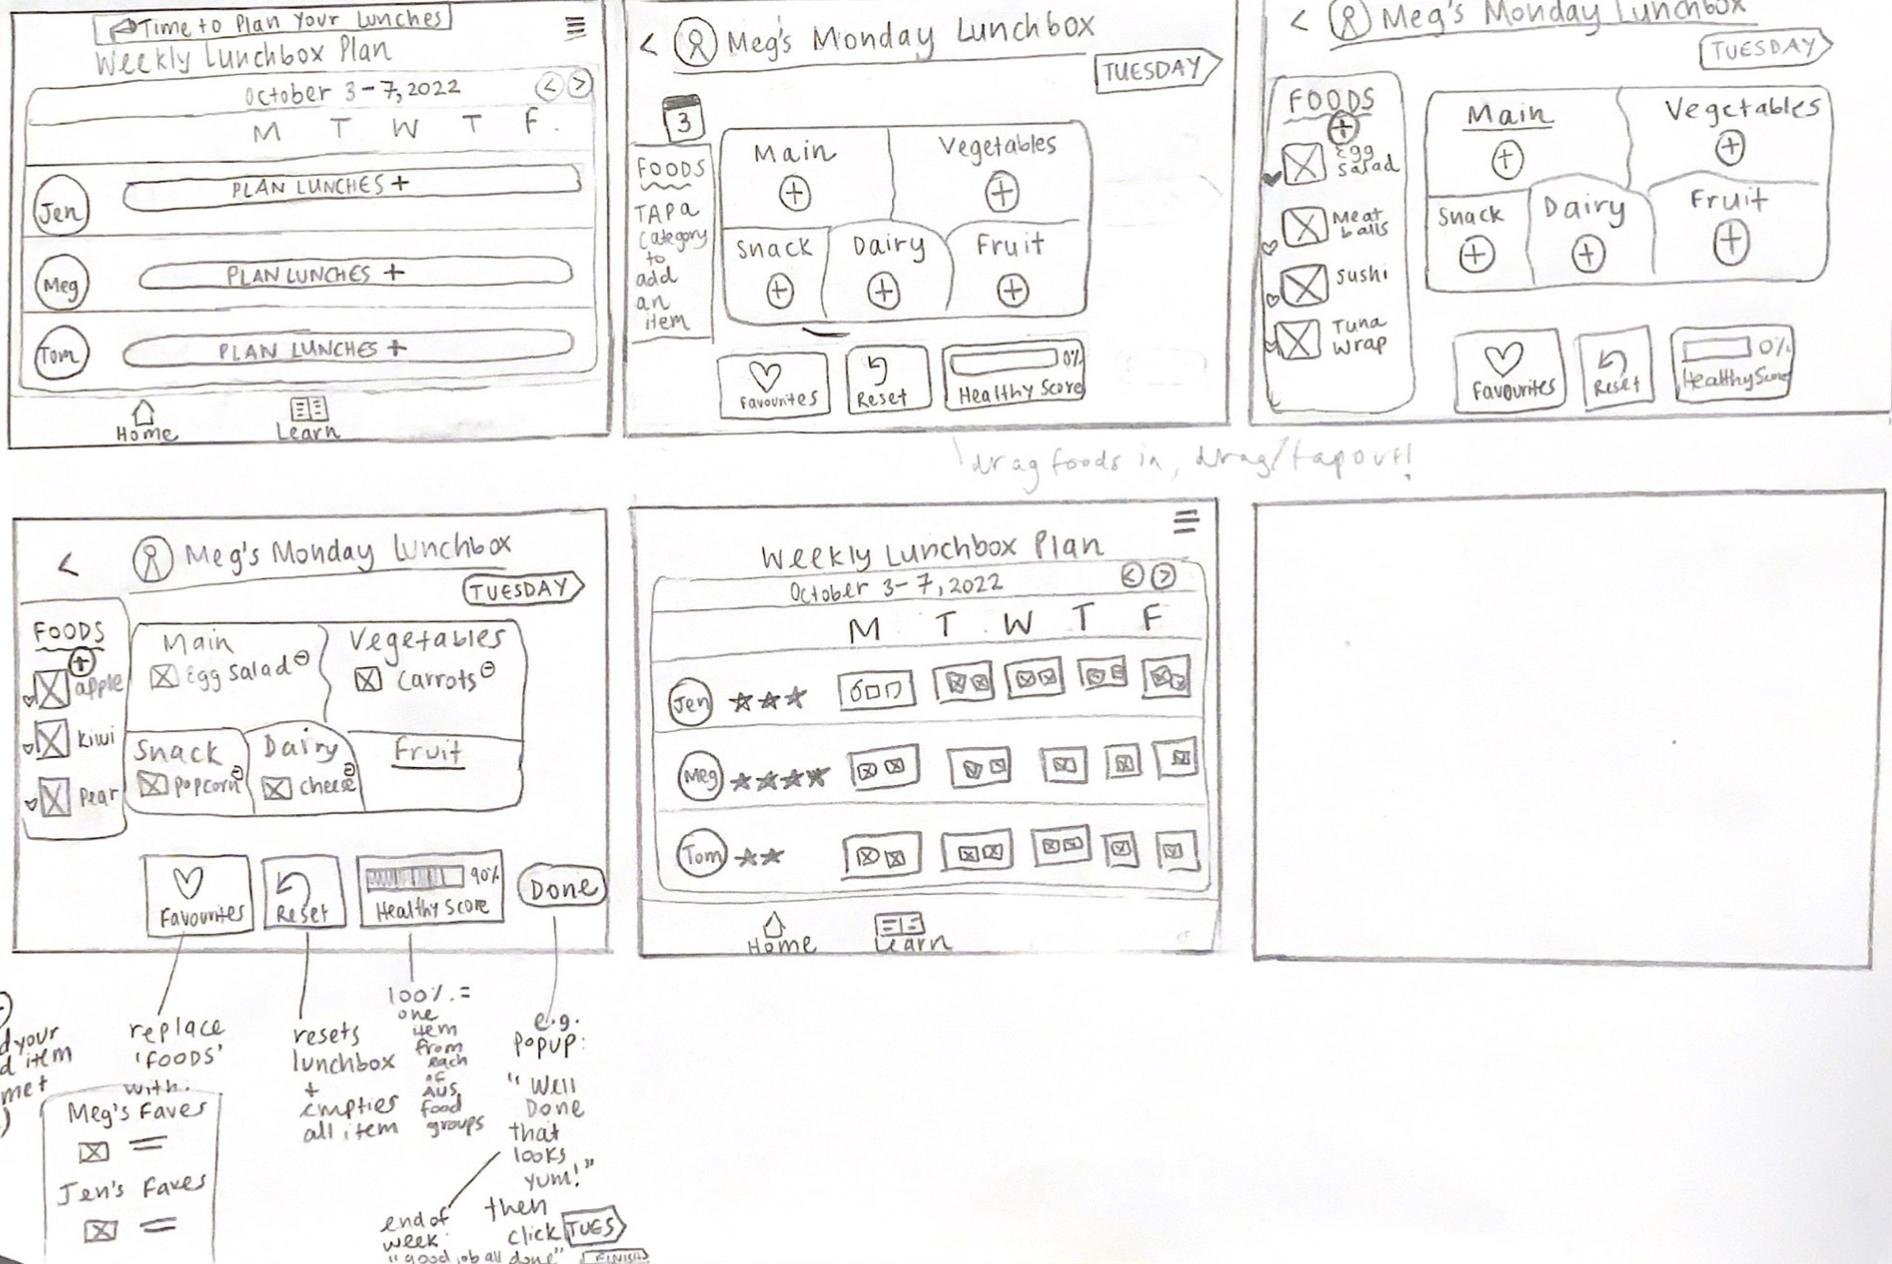 Time to Plan Your Lunches
Weekly Lunchbox Plan
October 3-7, 2022
< >
M T W T F.
Jen PLAN LUNCHES +
Meg PLAN LUNCHES +
Tom PLAN LUNCHES +
Home Learn
< Meg's Monday Lunchbox
TUESDAY
3
FOODS
TAP a
category
to
add
an
item
Main
+
Vegetables
+
Snack
+
Dairy
+
Fruit
+
Favourites
Reset
0%
Healthy Score
< Meg's Monday Lunchbox
TUESDAY
FOODS
+
Egg
salad
Meat
balls
sushi
Tuna
wrap
Main
+
Vegetables
+
Snack
+
Dairy
+
Fruit
+
Favourites
Reset
0%
Healthy Score
drag foods in, drag/tap out!
< Meg's Monday Lunchbox
TUESDAY
FOODS
+
apple
kiwi
Pear
Main
Egg Salad
Vegetables
Carrots
Snack
Popcorn
Dairy
cheese
Fruit
Favourites
Reset
90%
Healthy Score
Done
Weekly Lunchbox Plan
October 3-7, 2022
< >
M T W T F
Jen
Meg
Tom
Home Learn
your
item
replace
'FOODS'
with:
Meg's Faves
Jen's Faves
resets
lunchbox
+
empties
all item
100% =
one
item
from
each
of
AUS
food
groups
e.g.
Popup:
"Well
Done
that
looks
yum!"
then
click TUES
end of
week
"good job all done" FINISH